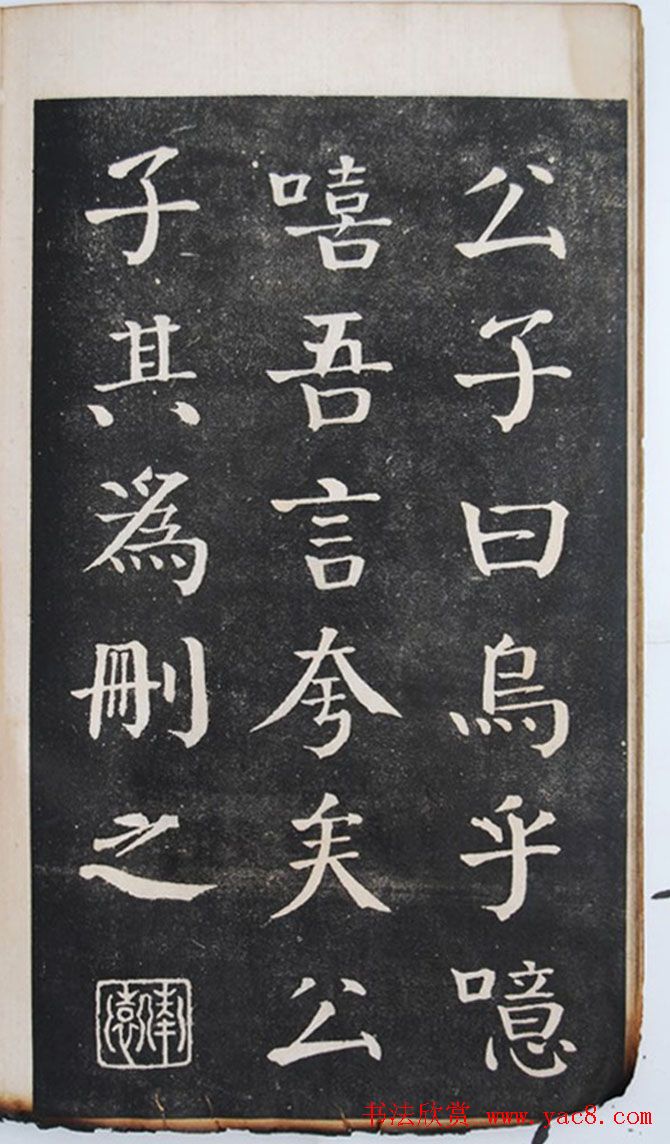 公子曰烏乎噫
嘻吾言夸矣公
子其為刪之
书法欣赏 www.yac8.com